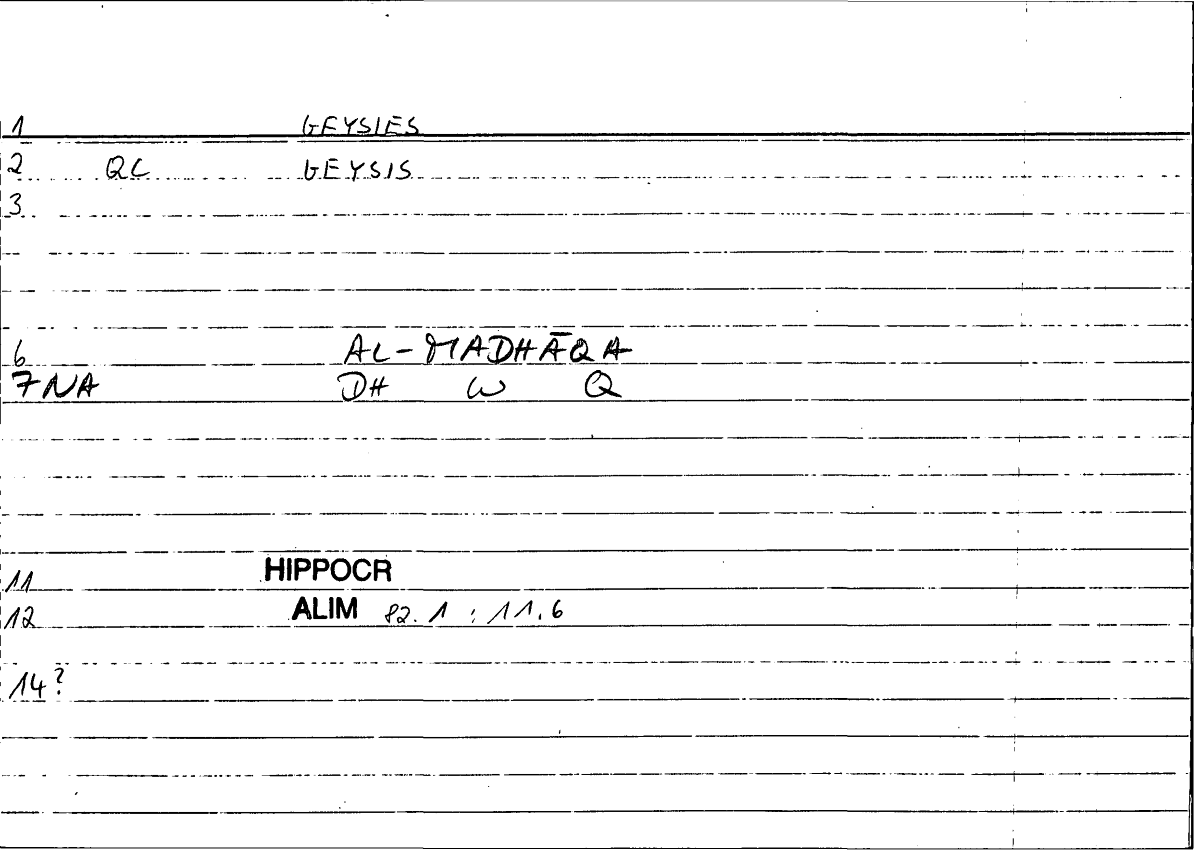 1 GEYSIES
2 QC GEYSIS
3
6 AL-MADHĀQA
7 NA DH W Q
11 HIPPOCR
12 ALIM 82.1 : 11.6
14?